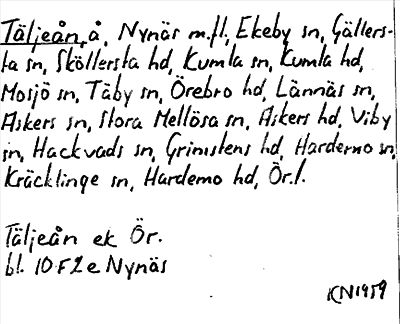 Täljeån, å, Nynäs m.fl., Ekeby sn, Gällers-
ta sn, Sköllersta hd, Kumla sn, Kumla hd,
Mosjö sn, Täby sn, Örebro hd, Lännäs sn,
Askers sn, Stora Mellösa sn, Askers hd, Viby
sn, Hackvads sn, Grimstens hd, Hardemo sn,
Kräcklinge sn, Hardemo hd, Ör.l.
Täljeån ek Ör.
bl. 10F2e Nynäs
KN1959